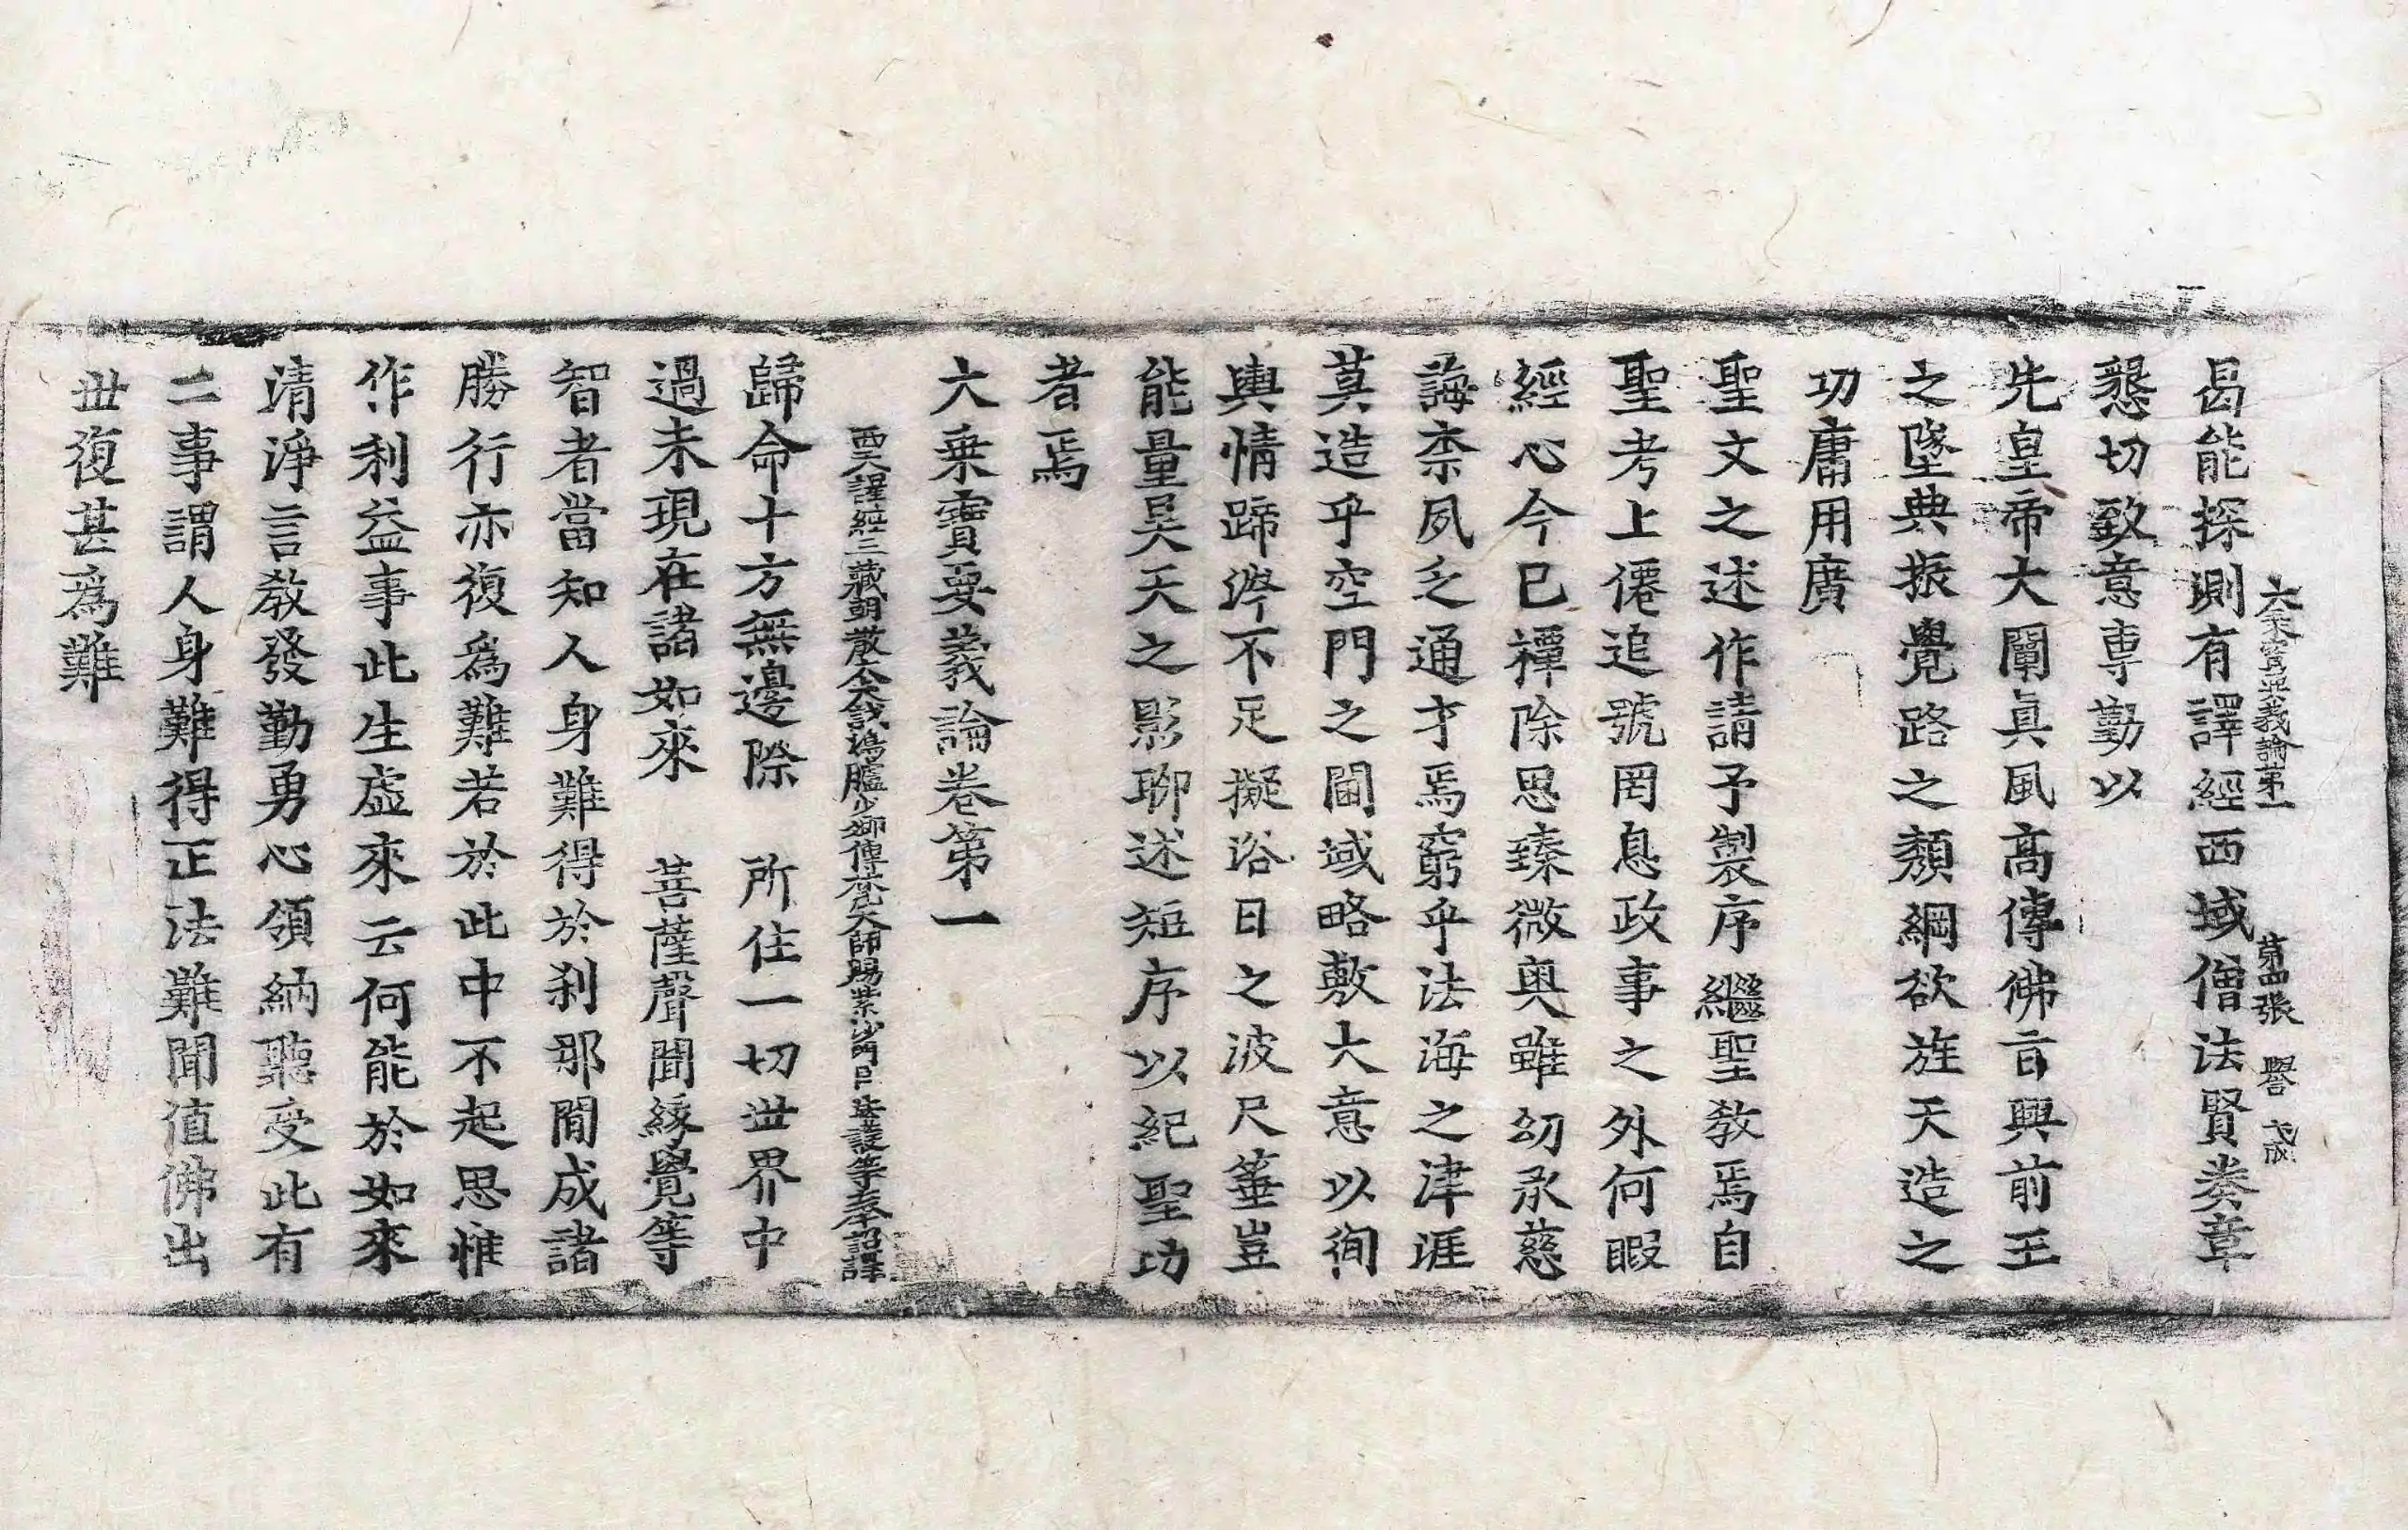 曷能探測有譯經西域僧法賢奏章
大乘寶要義論第一　第四張　譽
懇切致意專勤以
先皇帝大闡眞風高傳佛言興前王
之墜典振覺路之頹綱欲旌天造之
功庸用廣
聖文之述作請予製序繼聖教焉自
聖考上僊追號罔息政事之外何暇
經心今已禫除思臻微奧雖幼承慈
誨柰夙乏通才焉窮乎法海之津涯
莫造乎空門之閫域略敷大意以徇
輿情蹄涔不足擬浴日之波尺箠豈
能量昊天之影聊述短序以紀聖功
者焉
大乗寶要義論卷第一
西天譯經三藏朝散大夫試鴻臚少卿傳梵大師賜紫沙門臣法護等奉詔譯
歸命十方無邊際　所住一切世界中
過未現在諸如來　菩薩聲聞緣覺等
智者當知人身難得於刹那閒成諸
勝行亦復爲難若於此中不起思惟
作利益事此生虛來云何能於如來
清淨言教發勤勇心領納聽受此有
二事謂人身難得正法難聞值佛出
世復甚爲難